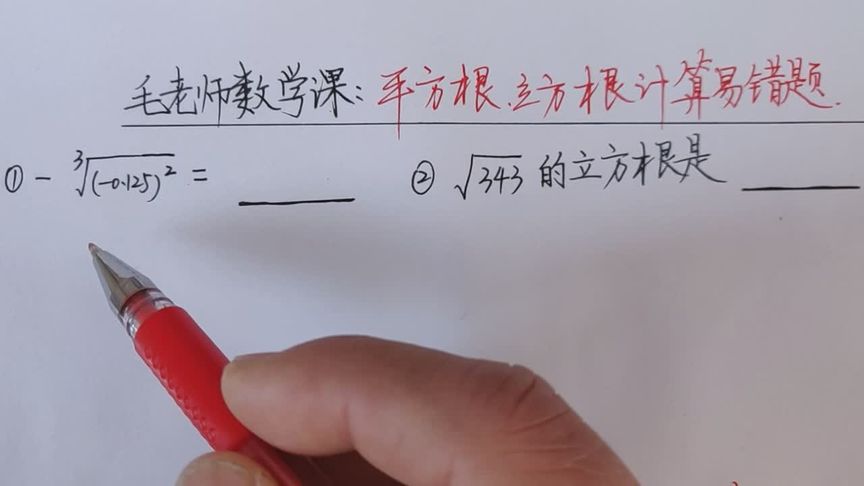 毛老师数学课:平方根、立方根计算易错题.
① - ∛(-0.125)² = ____ ② √343 的立方根是 ____